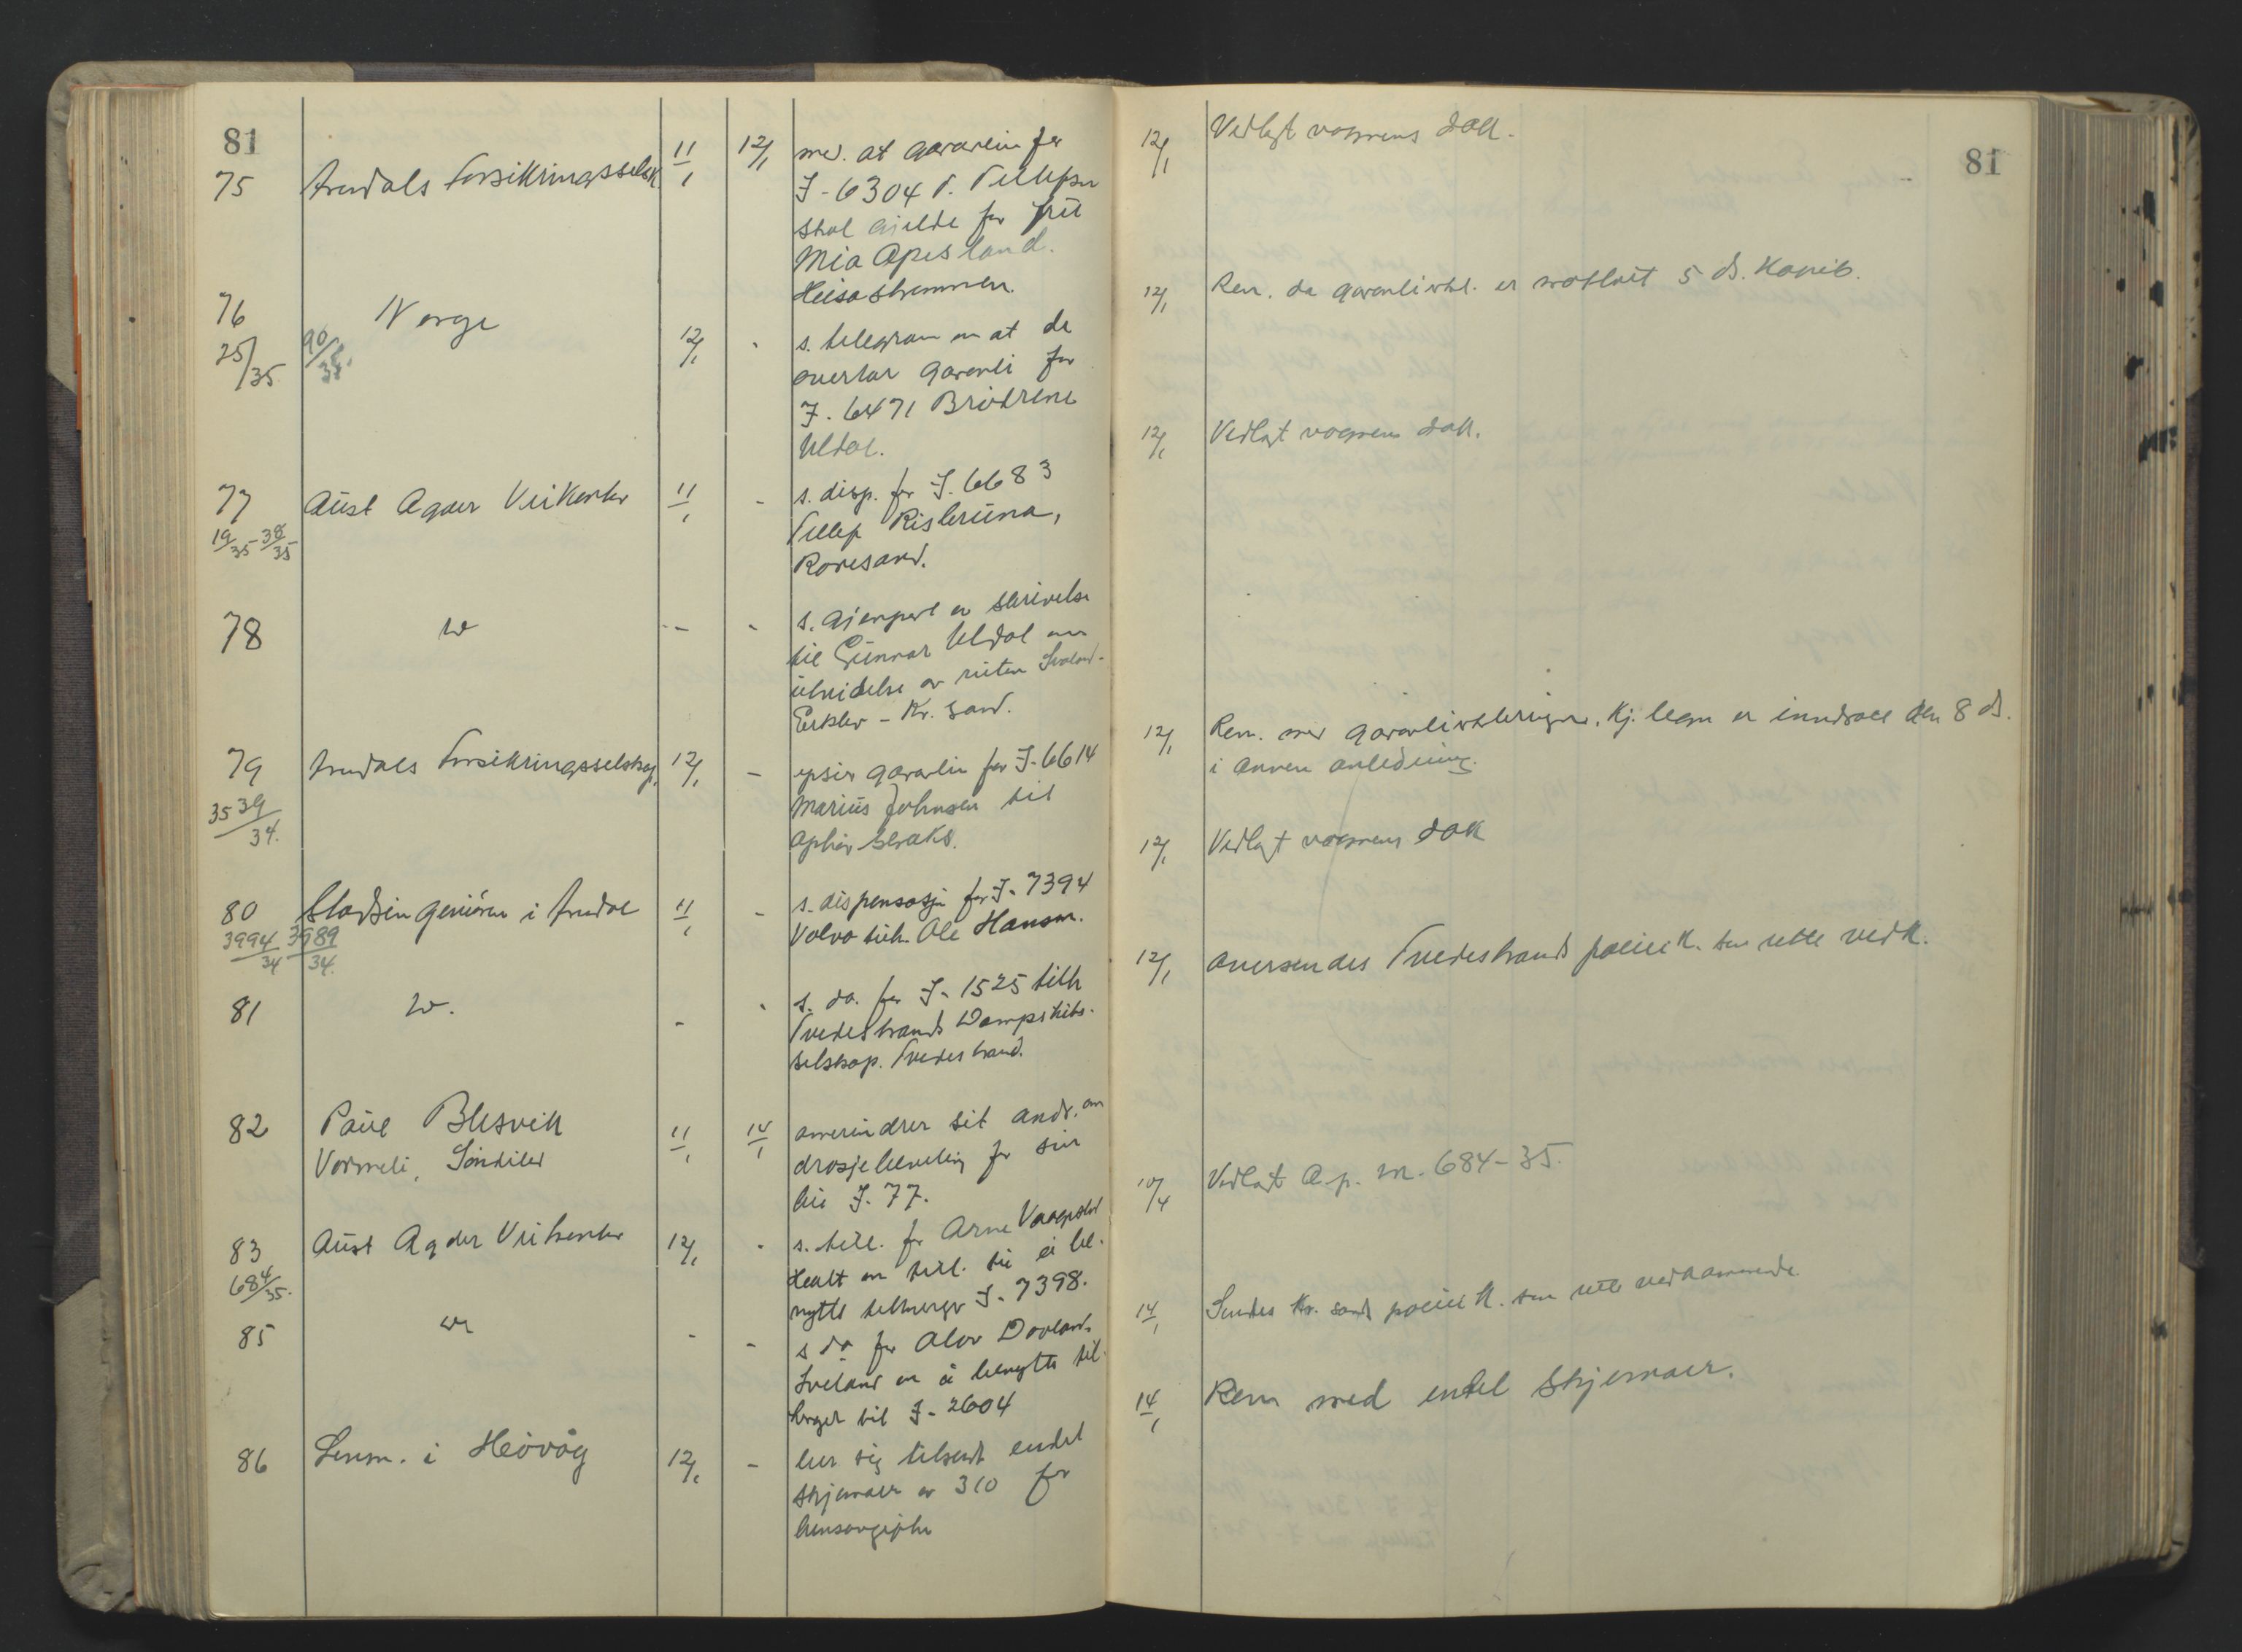 81
75 Arendals Forsikringsselsk. 11/1 12/1 med. at garantien for
J-6304 T. Tellefsen
skal gjelde for frk
Mia Apesland.
Heisastemmen.
76 Norge 12/1 - s. telegram om at de
25/35 90/35 overtar garanti for
J. 6471 Brødrene
Uldal.
77 Aust Agder Veikontor 11/1 - s. disp. for J. 6683
19/35 - 38/35 Tellef Risløruna,
Roresand.
78 do - - s. gjenpart av skrivelse
til Gunnar Uldal om
utvidelse av ruten
- Kr. sand.
79 Arendals Forsikringsselskap, 12/1 - opsier garantien for J-6614
3539/34. Marius Johnsen til
ophør straks.
80 Stadsingeniøren i Arendal 11/1 - s. dispensasjon for J. 7394
3994/34 3989/34. Volvo tilh. Ole Hansen.
81 do. - - s. do. for J. 1525 tilh
Tvedestrands Dampskibs-
selskap. Tvedestrand.
82 Paul Blesvik 11/1 14/1 andr. om
Vormeli, drosjebevilling for sin
bil J. 77.
83 Aust Agder Veikontor 12/1 - s. till. for Arne
684/35. om till. til å be-
nytte tilhenger J. 7398.
85 do - - s do for Olav
om å benytte til-
henger til J. 2604
86 Lensm. i Høvåg 12/1 - ber sig tilsendt endel
skjemaer av 310 for

81
12/1 Vedlagt vognens dok.
12/1 Ren. da garantierkl. er mottatt 5 ds.
12/1 Vedlagt vognens dok.
12/1 Ren. med garantierkleringen. Kj. legm er inndradd den 8 ds.
i annen anledning.
12/1 Vedlagt vognens dok
12/1 Oversendes Tvedestrand politik. som rette vedk.
10/4 Vedlagt A.p. nr. 684-35.
14/1 Sendes Kr. sand politik. som rette vedkommende.
14/1 Ren med endel skjemaer.